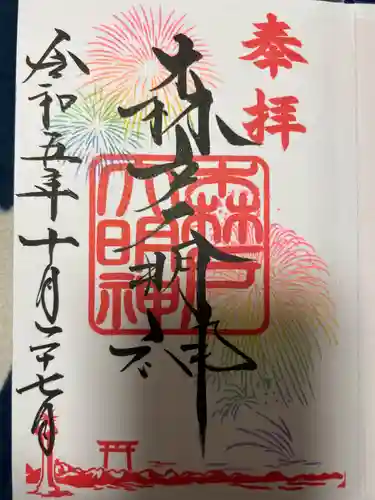 奉拝
森戸大明神
森戸
大明神
令和五年十月二十七日